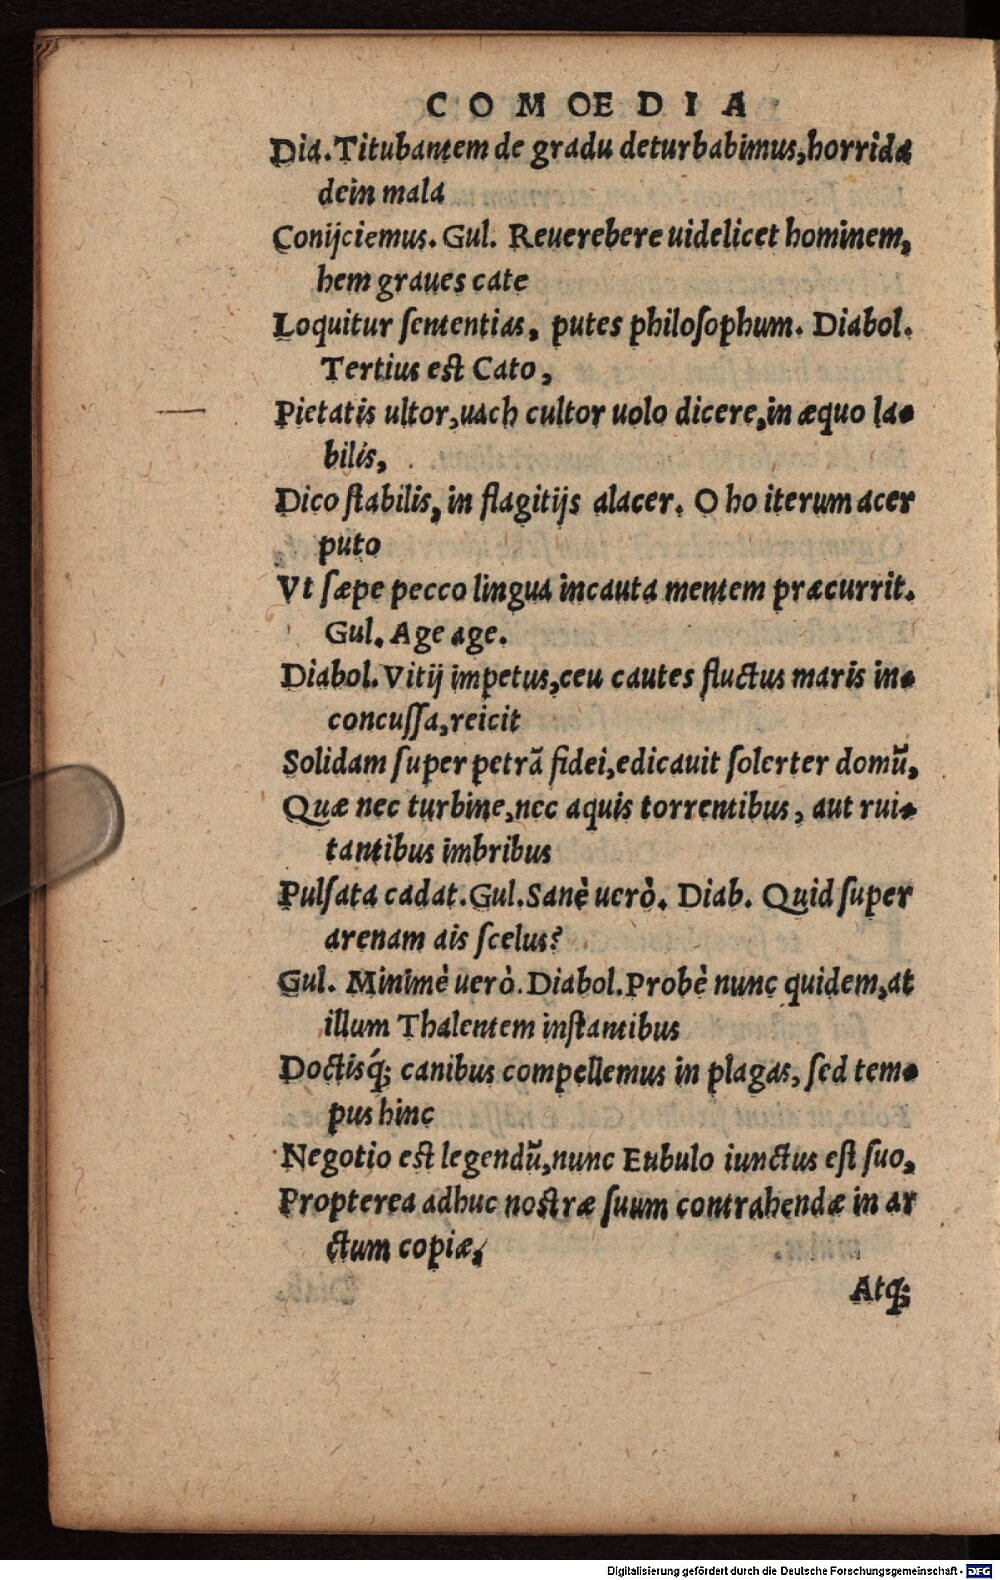 COMOEDIA
Dia. Titubantem de gradu deturbabimus, horrida
dein mala
Conijciemus. Gul. Reuerebere uidelicet hominem,
hem graues cate
Loquitur sententias, putes philosophum. Diabol.
Tertius est Cato,
Pietatis ultor, uach cultor uolo dicere, in æquo la-
bilis,
Dico stabilis, in flagitijs alacer. O ho iterum acer
puto
Vt sæpe pecco lingua incauta mentem præcurrit.
Gul. Age age.
Diabol. Vitij impetus, ceu cautes fluctus maris in-
concussa, reicit
Solidam super petrã fidei, edicauit solerter domũ,
Quæ nec turbine, nec aquis torrentibus, aut rui-
tantibus imbribus
Pulsata cadat. Gul. Sanè uerò. Diab. Quid super
arenam ais scelus?
Gul. Minimè uerò. Diabol. Probè nunc quidem, at
illum Thalentem instantibus
Doctisq́; canibus compellemus in plagas, sed tem-
pus hinc
Negotio est legendũ, nunc Eubulo iunctus est suo,
Propterea adhuc nostræ suum contrahendæ in ar
ctum copiæ,
Atq;
Digitalisierung gefördert durch die Deutsche Forschungsgemeinschaft - DFG